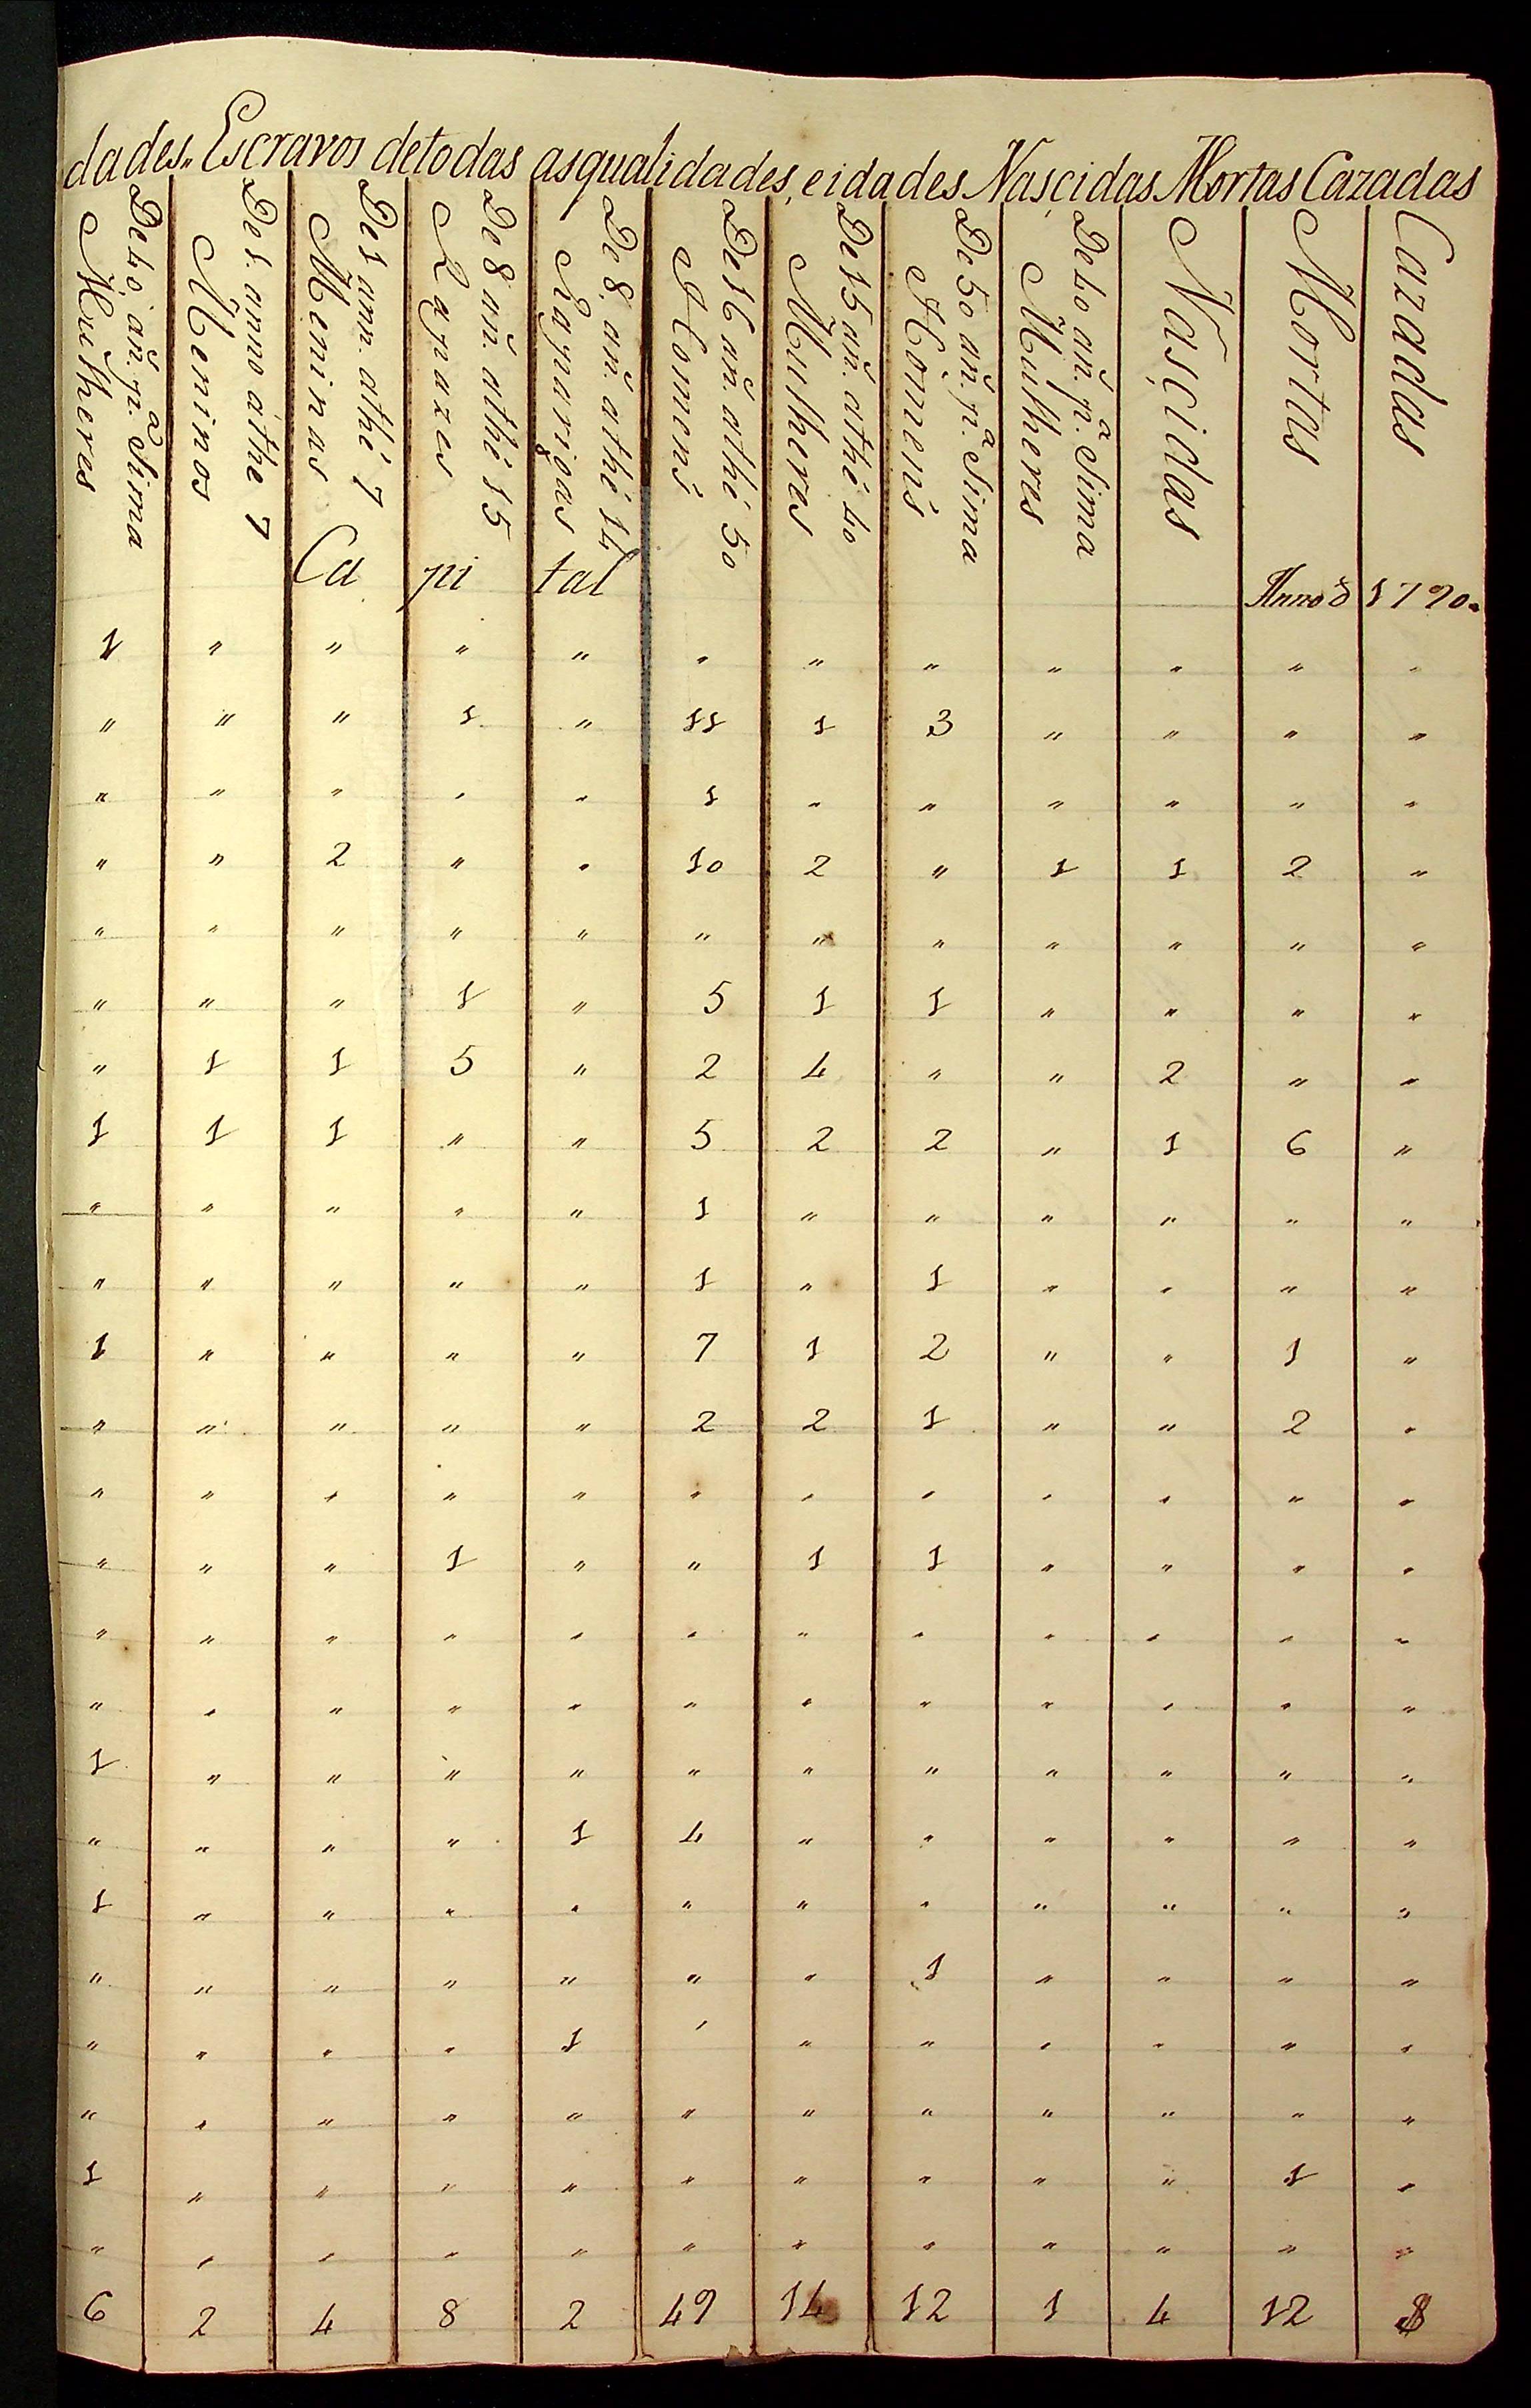 dades,, Escravos detodas asqualidades, e idades Nascidas Mortas Cazadas
De 40 añ. p.ª Sima Mulheres
De 1. anno athe 7 Meninos
De 1 ann. athé 7 Meninas
De 8 añ. athé 15 Rapazes
De 8, añ. athé 14 Raparigas
De 16 añ. athé 50 Homens
De 15 añ. athé 40 Mulheres
De 50 añ. p.ª Sima Homens
De 40 añ. p.ª Sima Mulheres
Nascidas
Mortas
Cazadas
Ca pi tal Anno d 1790.
1 " " " " " " " " " " "
" " " 1 " 11 1 3 " " " "
" " " " " 1 " " " " " "
" " 2 " " 10 2 " 1 1 2 "
" " " " " " " " " " " "
" " " 1 " 5 1 1 " " " "
" 1 1 5 " 2 4 " " 2 " "
1 1 1 " " 5 2 2 " 1 6 "
" " " " " 1 " " " " " "
" " " " " 1 " 1 " " " "
1 " " " " 7 1 2 " " 1 "
" " " " " 2 2 1 " " 2 "
" " " " " " " " " " " "
" " " 1 " " 1 1 " " " "
" " " " " " " " " " " "
" " " " " " " " " " " "
1 " " " " " " " " " " "
" " " " 1 4 " " " " " "
1 " " " " " " " " " " "
" " " " " " " 1 " " " "
" " " " 1 " " " " " " "
" " " " " " " " " " " "
1 " " " " " " " " " 1 "
" " " " " " " " " " " "
6 2 4 8 2 49 14 12 1 4 12